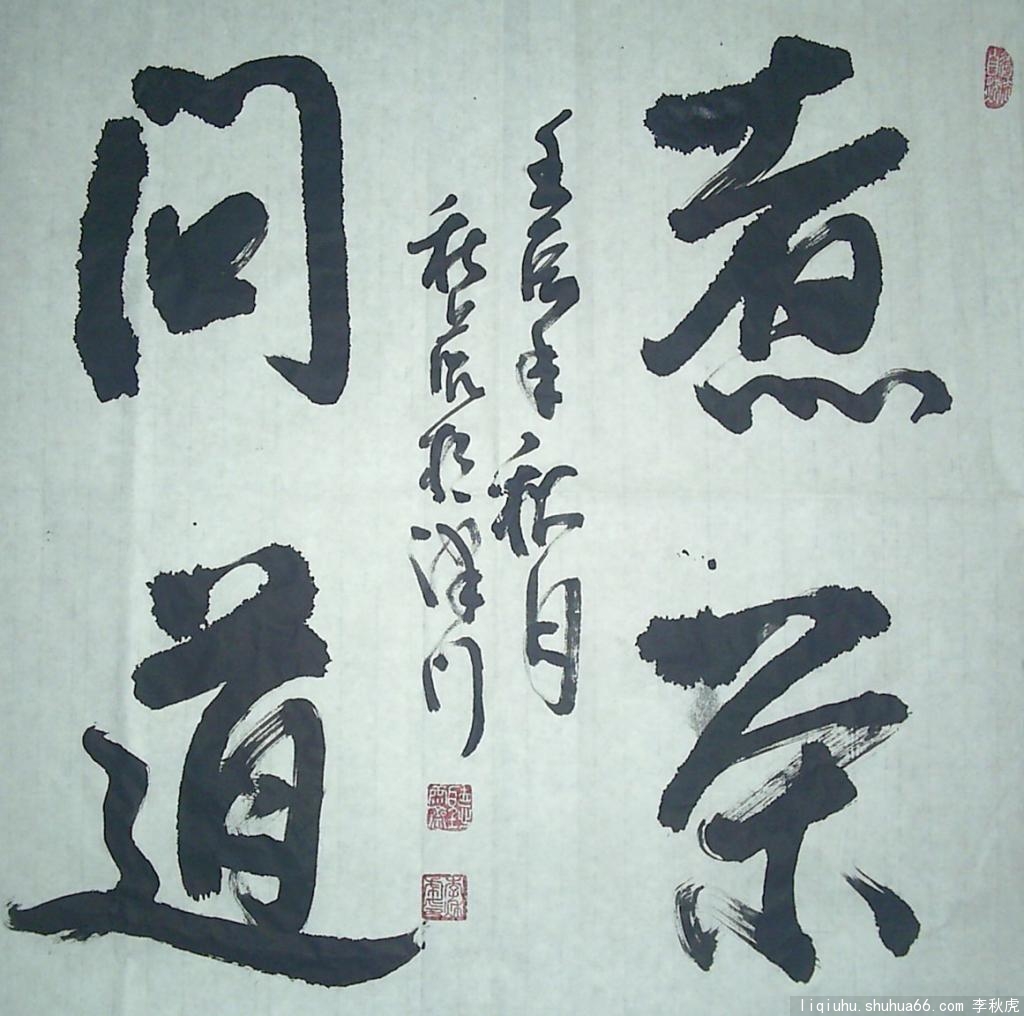 煮茶
问道
壬辰年秋月
秋虎於津门
liqiuhu.shuhua66.com 李秋虎